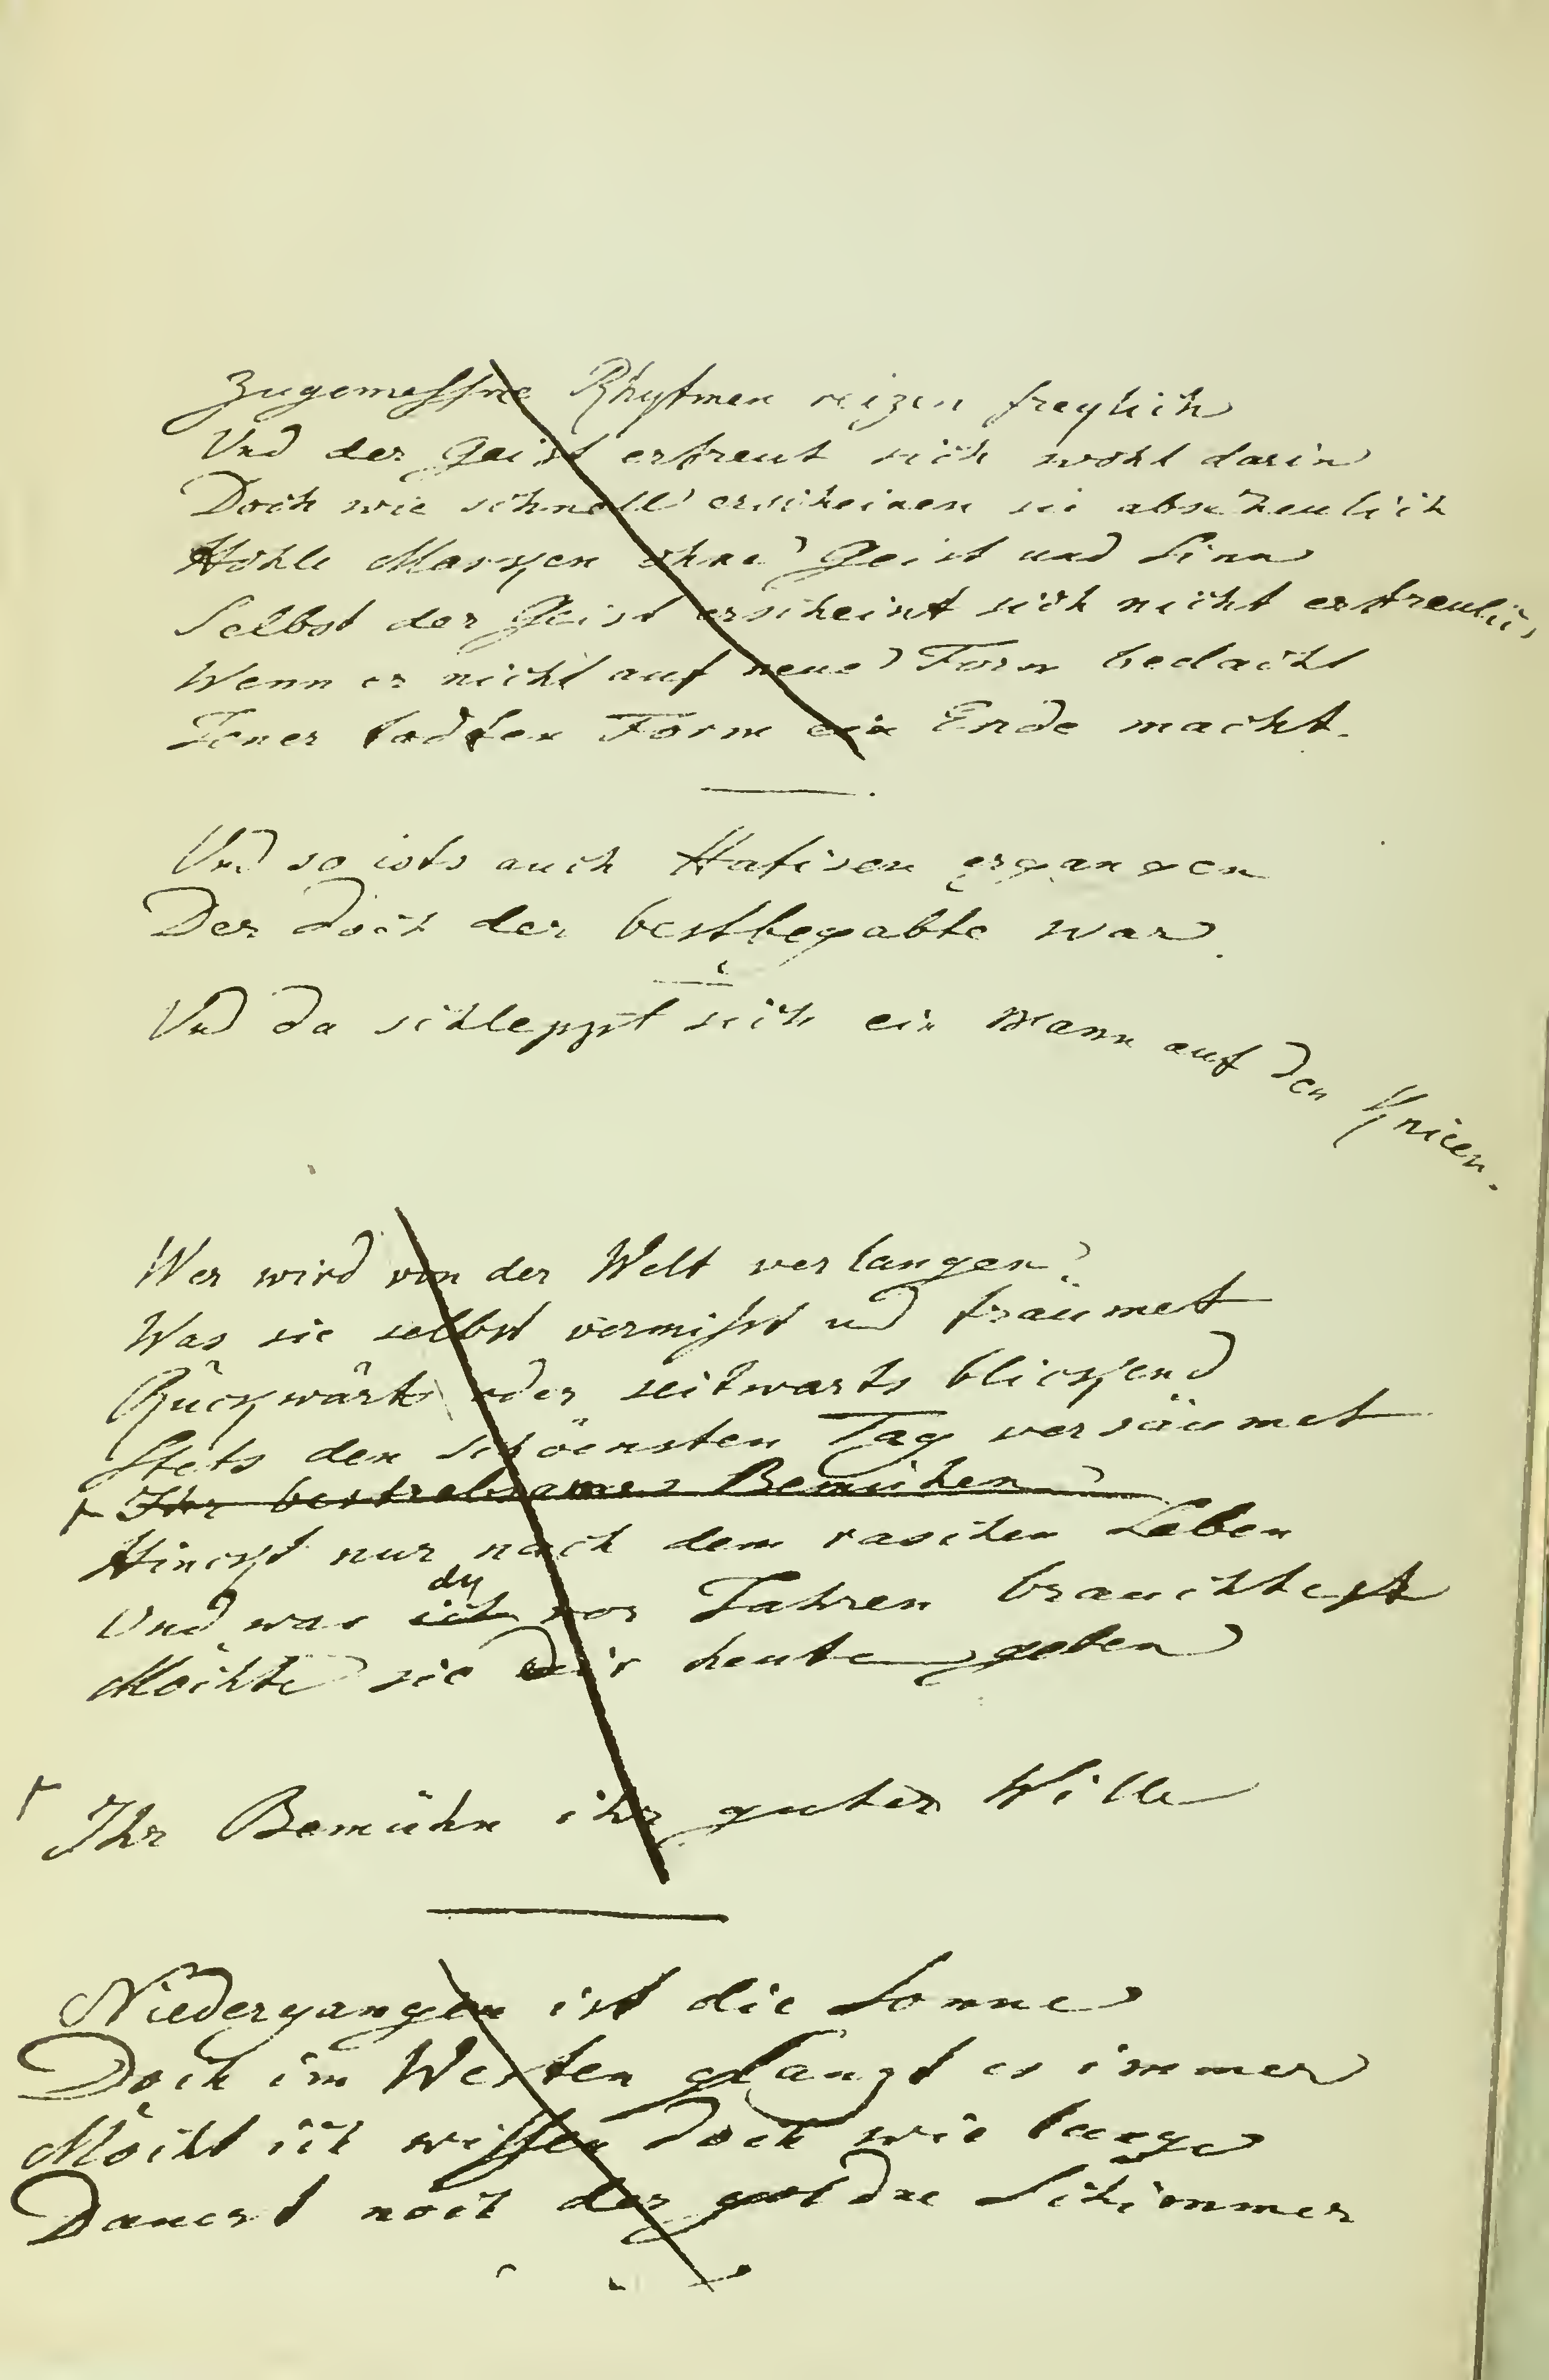 Zugemessne Rhytmen reizen freylich
Und der Geist erfreut sich wohl darin
Doch wie schnell erscheinen sie abscheulich
Hohle Marsken ohne Geist und Sinn
Selbst der Geist erscheint sich nicht erfreulich
Wenn er nicht auf neue Form bedacht
Jener todten Form ein Ende macht.
Und so ists auch Hafisen ergangen
Der doch der bestbegabte war.
Und da schleppt sich ein Mann auf den Knieen.
Wer wird von der Welt verlangen?
Was sie selbst vermisst und träumet
Rückwärts oder seitwarts blickend
Stets den schöensten Tag versäumet
Ihr bestrebsames Bemühen
Hinckt nur nach dem raschen Leben
du
Und was ich vor Jahren brauchtest
Möchte sie dir heute geben
Ihr Bemühn ihr guter Wille
Niedergangen ist die Sonne
Doch im Westen glänzt es immer
Möcht ich wissen doch wie lange
Dauert noch der goldne Schimmer